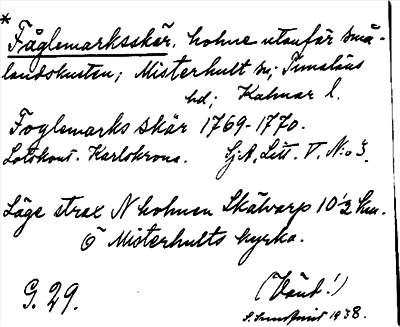 * Fåglemarksskär, holme utanför små-
landskusten; Misterhult sn; Tunaläns
hd; Kalmar l.
Foglemarks skär 1769-1770.
Lotskont. Karlskrona. SjA, Litt. V. N:o 3.
Läge strax N holmen Skälvarp 10 1/2 km.
O Misterhults kyrka.
G. 29. (Vänt!)
1938.